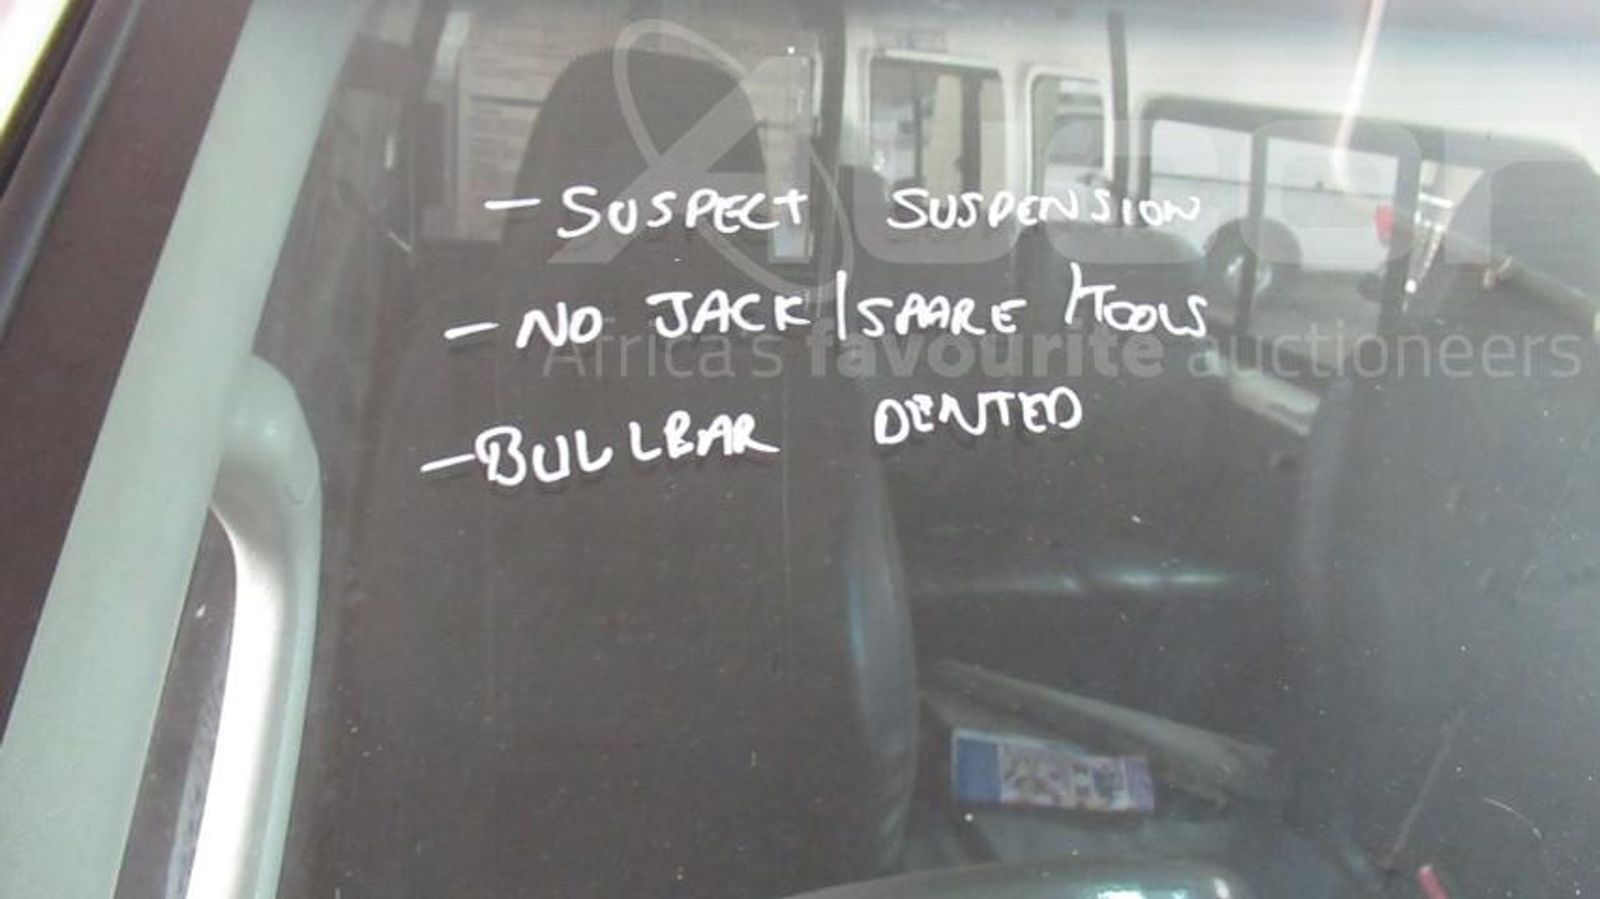 - SUSPECT SUSPENSION
- NO JACK/SPARE/TOOLS
Africa's favourite auctioneers
- BULLBAR DENTED